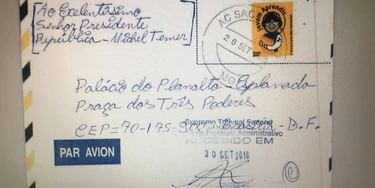 Ao Excelentíssimo
Senhor Presidente
República - Michel Temer
AC SAC
28 SET
Jovem Aprendiz
MG
Palácio do Planalto - Esplanada
Praça dos Três Poderes
CEP=70-175-900 Brasília - D.F.
Supremo Tribunal Federal
Protocolo Administrativo
RECEBIDO EM
30 SET 2016
PAR AVION